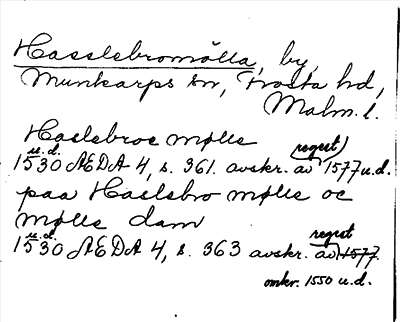 Hasslebromölla, by,
Munkarps sn, Frosta hd,
Malm. l.
Haslebroe mølle
u.d. regest)
1530 ÆDA 4, s. 361. avskr. av 1577 u.d.
paa Haslebro mølle oc
mølle dam
u.d. regest
1530 ÆDA 4, s. 363 avskr. av) 1577.
omkr. 1550 u.d.